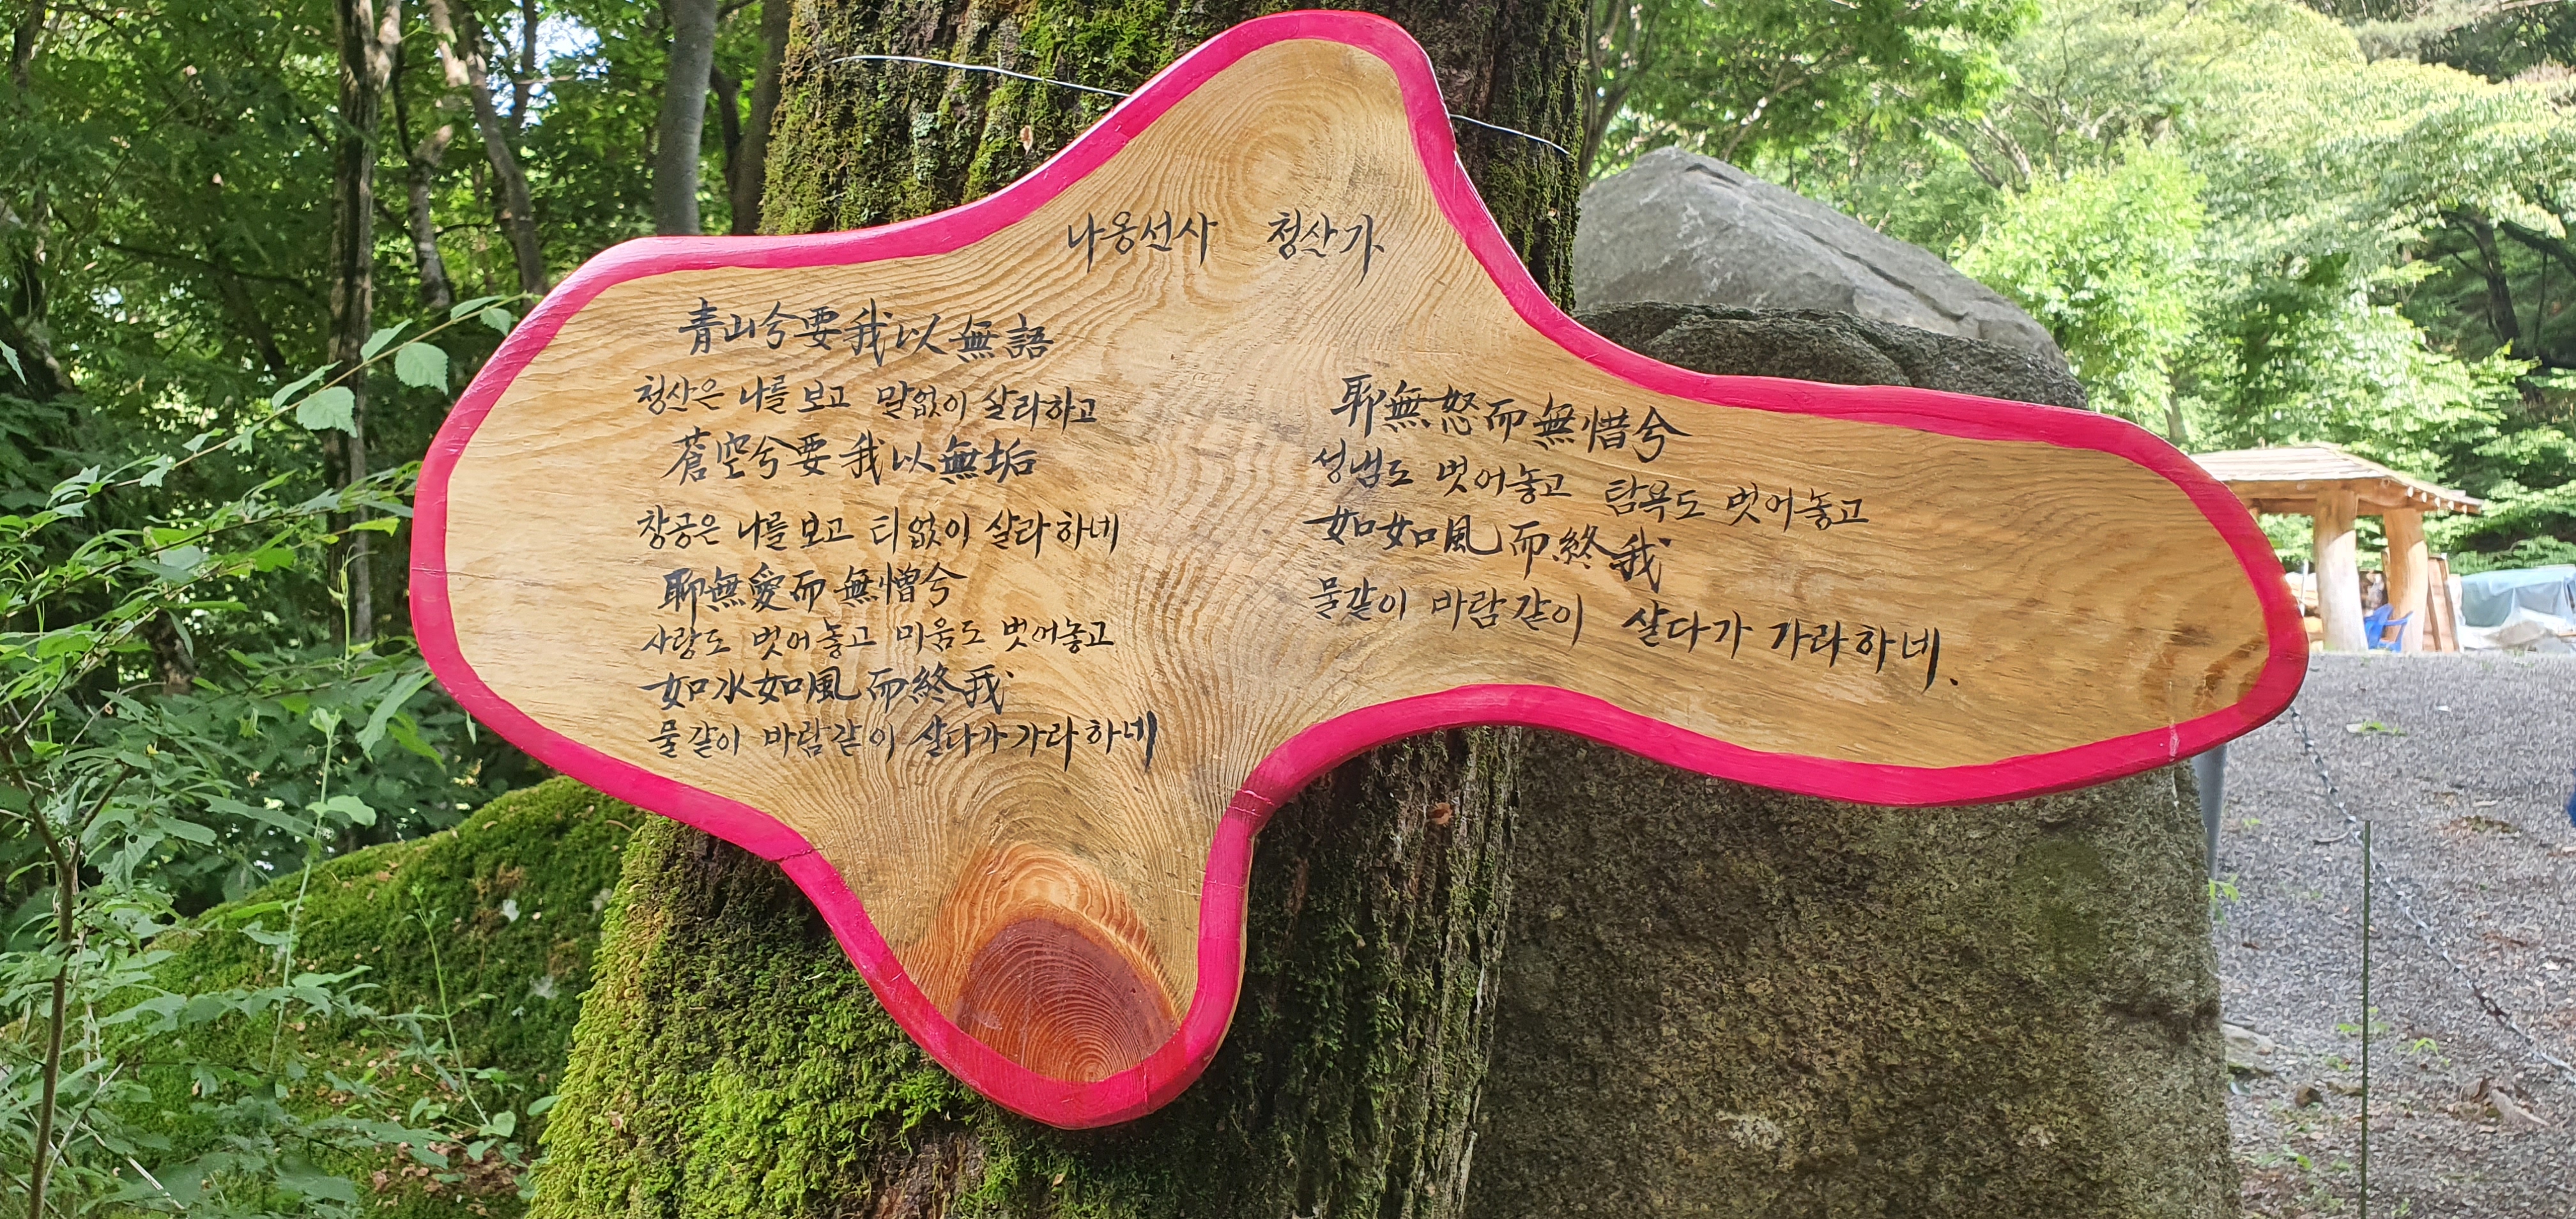 나옹선사 청산가
青山兮要我以無語
청산은 나를 보고 말없이 살라하고
蒼空兮要我以無垢
창공은 나를 보고 티없이 살라하네
聊無愛而無憎兮
사랑도 벗어놓고 미움도 벗어놓고
如水如風而終我
물같이 바람같이 살다가 가라하네
聊無怒而無惜兮
성냄도 벗어놓고 탐욕도 벗어놓고
如如風而終我
물같이 바람같이 살다가 가라하네.